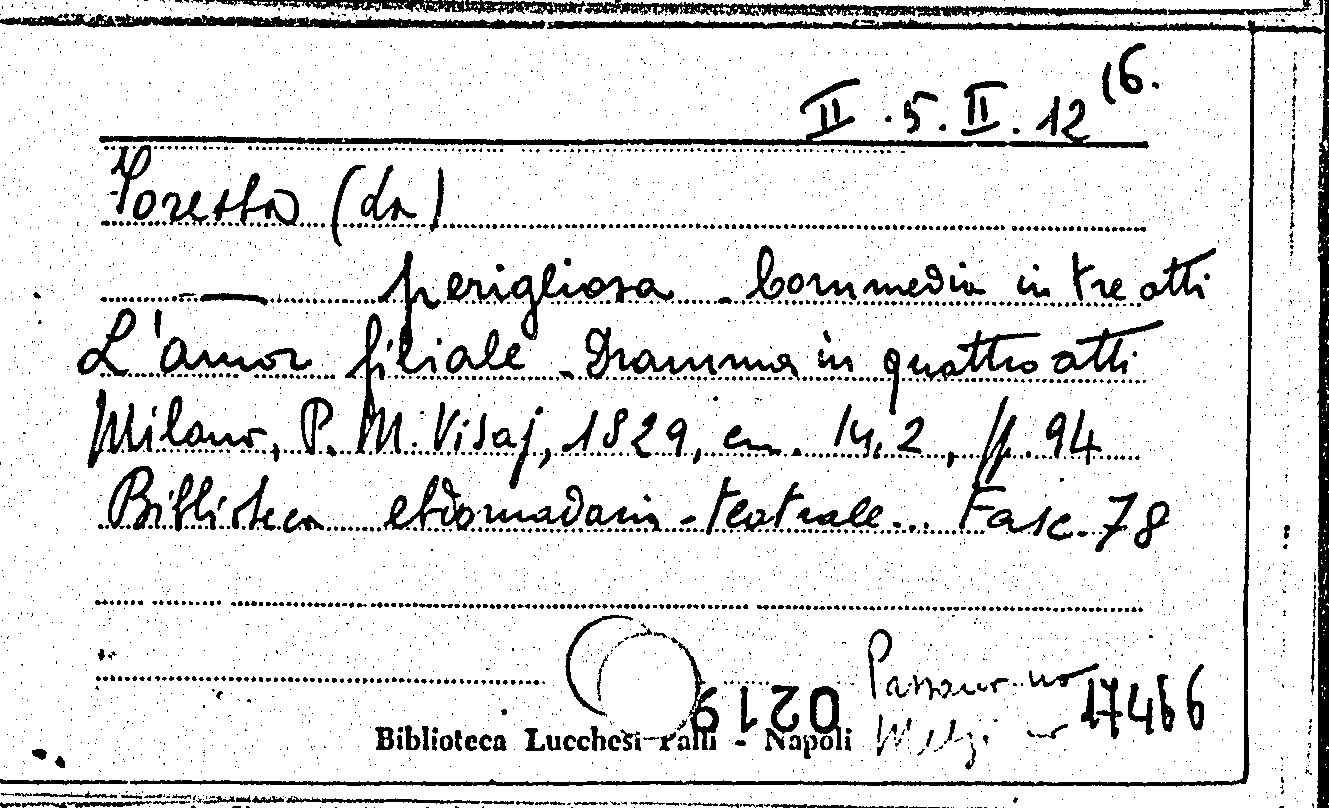 II . 5. II. 12 16.
Foresta (La)
— perigliosa - Commedia in tre atti
L'amor filiale - Dramma in quattro atti
Milano, P. M. Visaj, 1829, cm. 14,2, pp. 94
Biblioteca ebdomadaria-teatrale... Fasc. 78
Passano no
Melzi no
0219
17466
Biblioteca Lucchesi Palli - Napoli